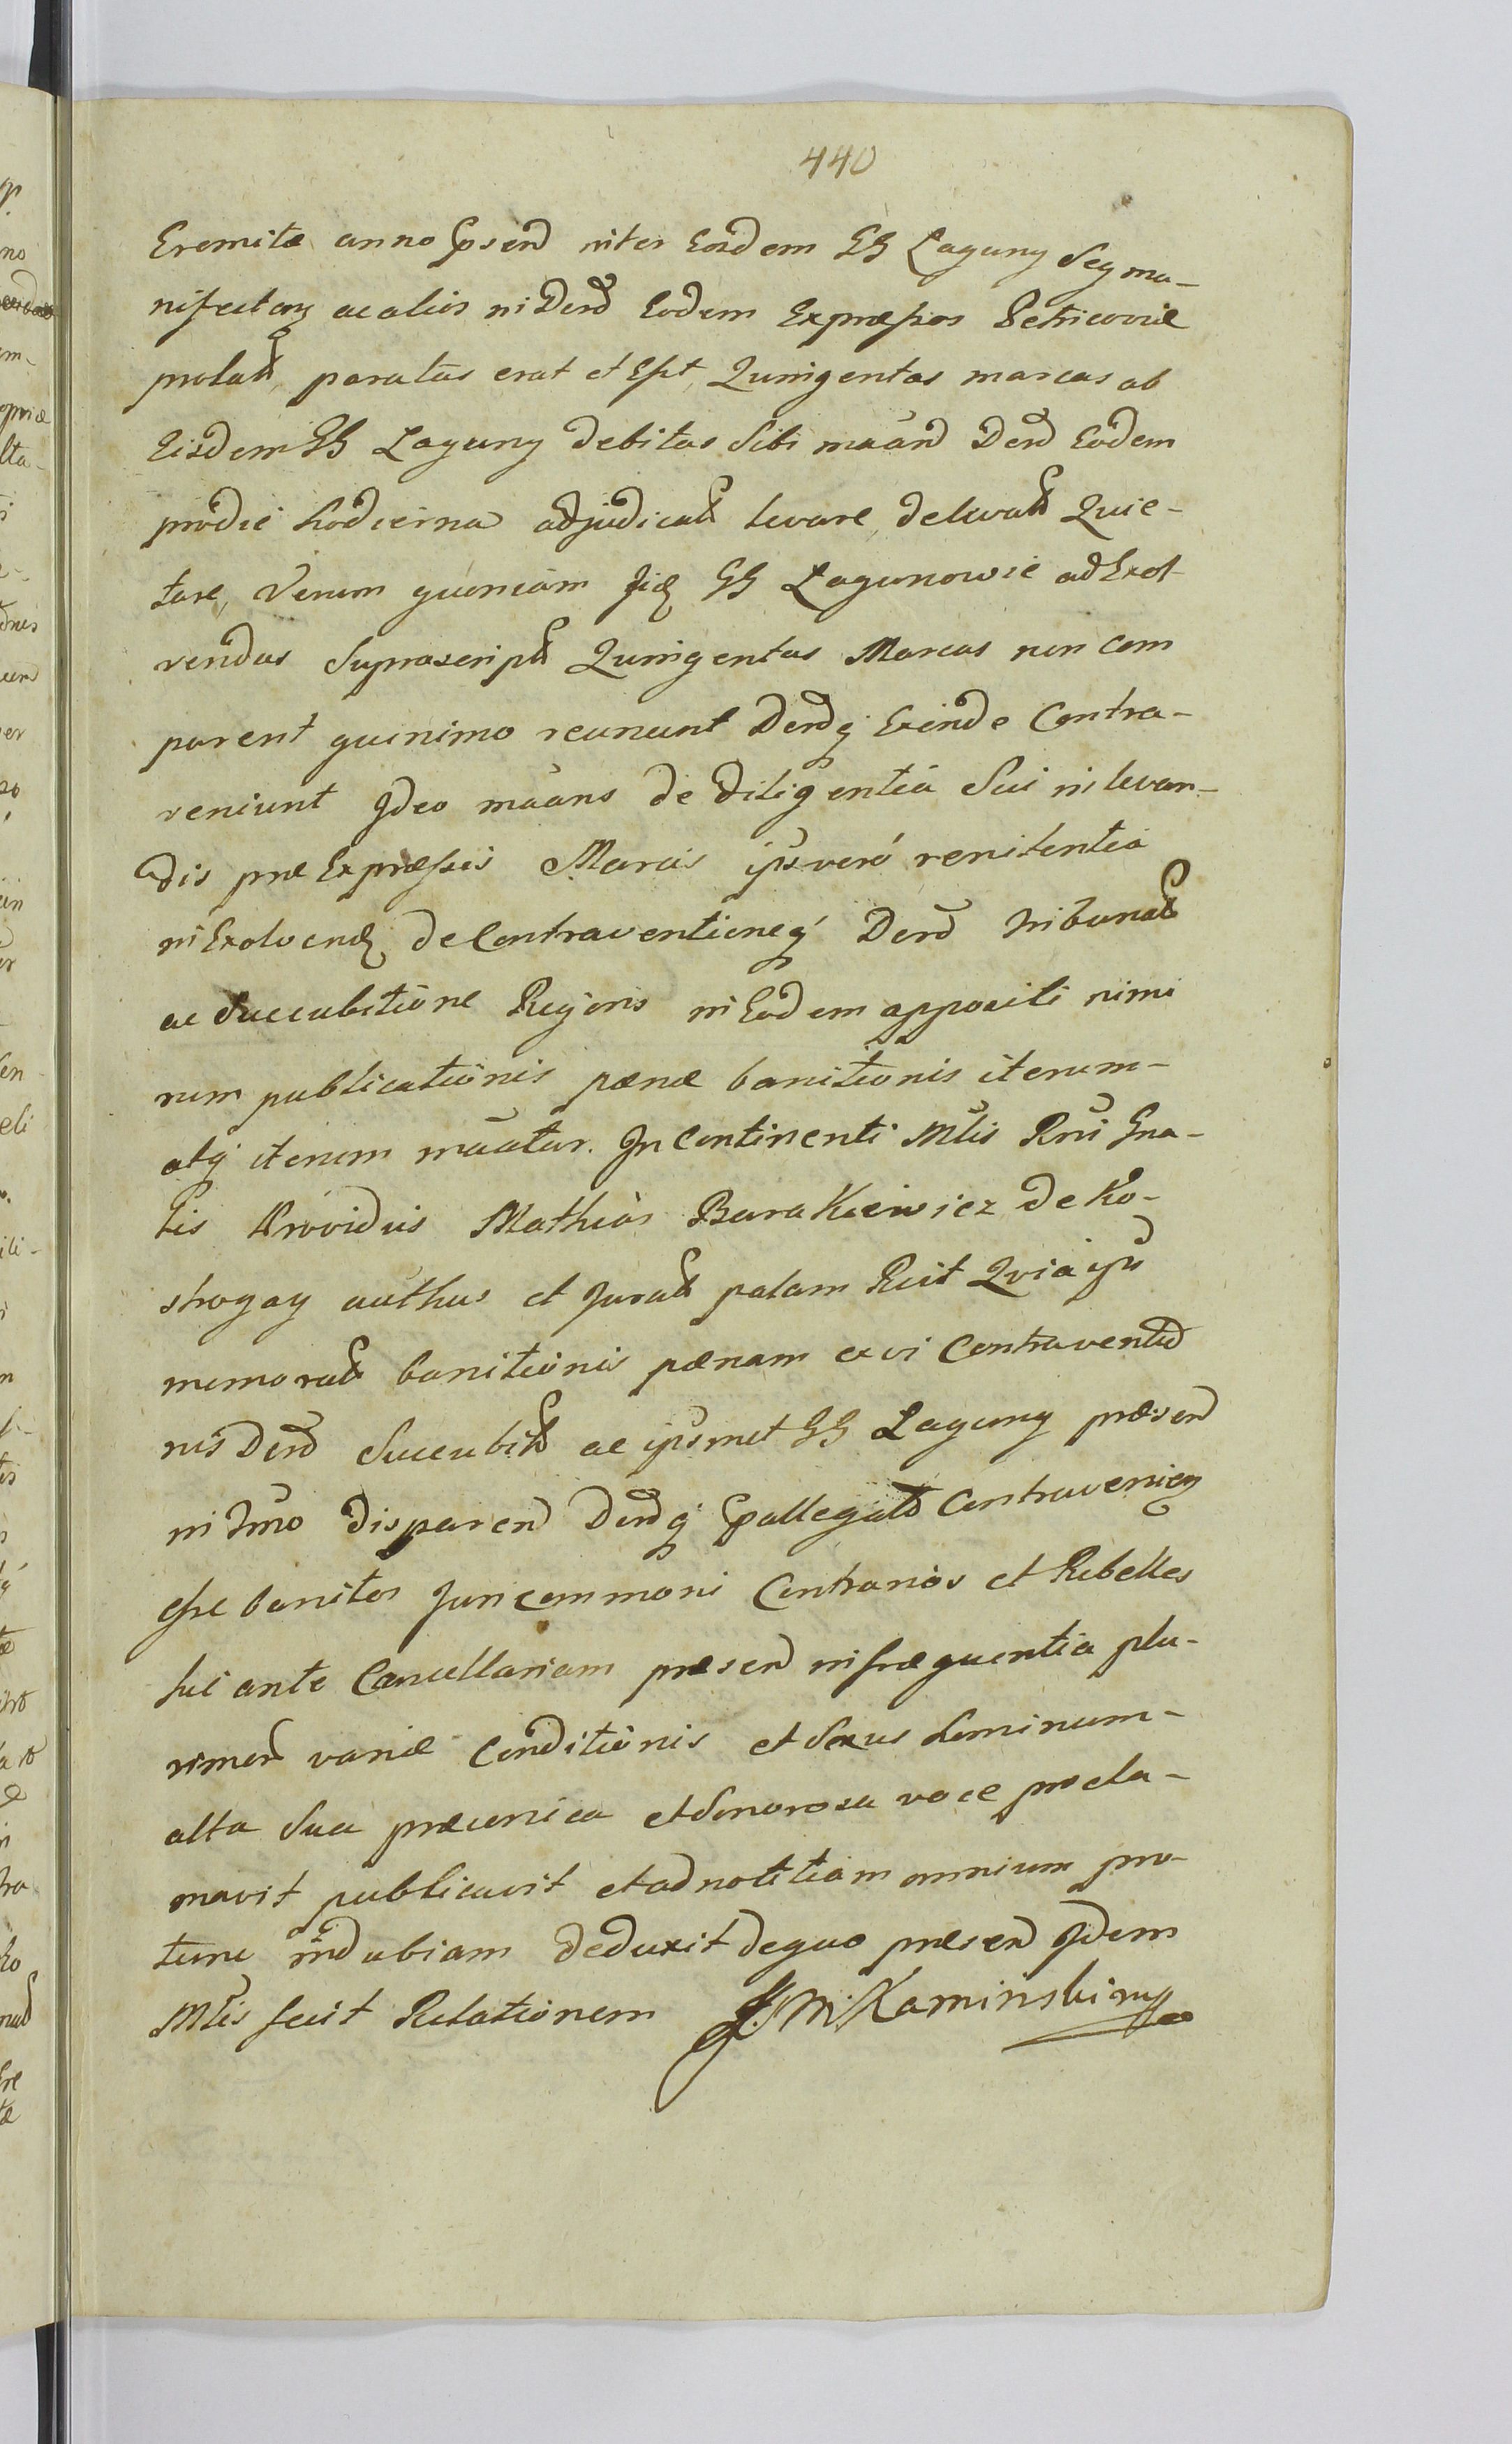 440
Eremitæ anno psend inter Eosdem GG Laguny seq ma-
nifestaq ac alios in Derd Eodem Expræssos Petricoviæ
prolatt, paratus erat et Est, Quingentas marcas ab
Eisdem GG Laguny debitas Sibi maand Derd Eodem
prodie hodierna adjudicatt levare, delevatt Quie-
tare, Verum quoniam Iidq GG Lagunowie ad Exol-
vendas Suprascriptt Quingentas Marcas non com
parent quinimo renunt Derdq Exinde Contra-
veniunt Ideo maans de Diligentia Sui in levan-
dis præ Expræssis Marcis ipsr vero renitentia
in Exolvendq de Contraventioneq Derd tribunatt
ac Succubitione Regions in Eodem appositi nimi
rum publicationis pænæ banitionis iterum-
atq iterum maatur. In Continenti Mtlis Rni Gna-
lis Providus Mathias Barakiewicz de Ko-
strogay authus et Juratt palam Rcit Quia ips
memoratt banitionis pænam ex vi Contraventio
nis Derd Succubitt ac ipsmet GG Laguny præsend
in Tmo disparend Derdq pallegato Contraveniēn
esse banitos Juri communi Contrarios et Rebelles
hic ante Cancellariam præsend in fræquentia plu-
rimor variæ Conditionis et Sexus hominum-
alta Sua præconica et Sonorosa voce procla-
mavit publicavit et ad notitiam omnium pro-
tunc indubiam deduxit de quo præsend Idem
Mtlis fecit Relationem J. M. Kaminski mp